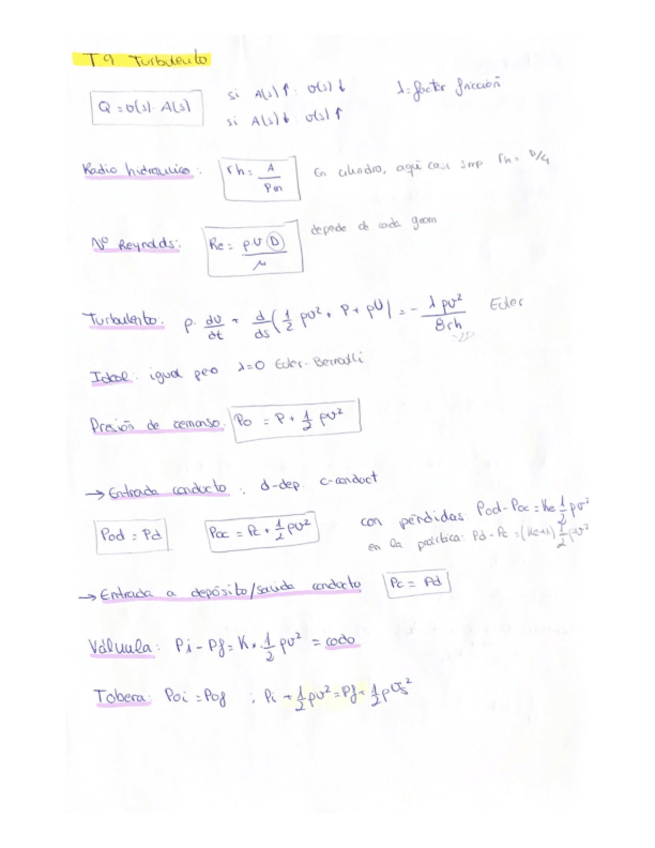 T9 Turbulento
Q = v(s) · A(s) si A(s)↑ : v(s)↓ λ: factor fricción
si A(s)↓ v(s)↑
Radio hidráulico: rh = A/Pm En cilindro, aquí casi smp rh = D/4
Nº Reynolds: Re = ρ v D / μ depende de cada geom
Turbulento: ρ · dv/dt + d/ds (1/2 ρv² + P + ρU) = - λρv²/8rh Euler
Ideal: igual pero λ=0 Euler-Bernoulli
Presión de remanso: Po = P + 1/2 ρv²
→ Entrada conducto: d-dep. c-conduct
Pod = Pd Poc = Pc + 1/2 ρv² con pérdidas: Pod - Poc = Ke 1/2 ρv²
en la práctica: Pd - Pc = (Ke+1) 1/2 ρv²
→ Entrada a depósito/salida conducto Pc = Pd
Válvula: Pi - Pf = Kv · 1/2 ρv² = codo
Tobera: Poi = Pof ; Pi + 1/2 ρv² = Pf + 1/2 ρVs²